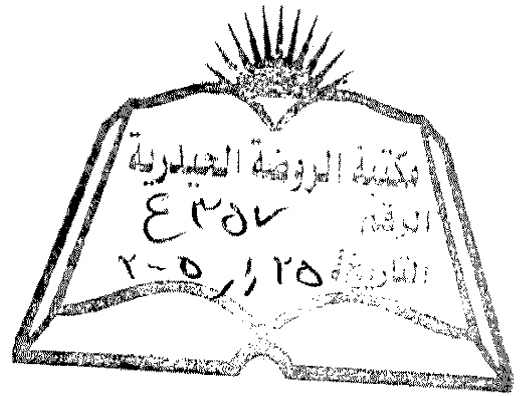 مكتبة الروضة الحيدرية
الرقم ٣٥٧ ع
التاريخ ٢٥ / ر / ٢٠٠٥